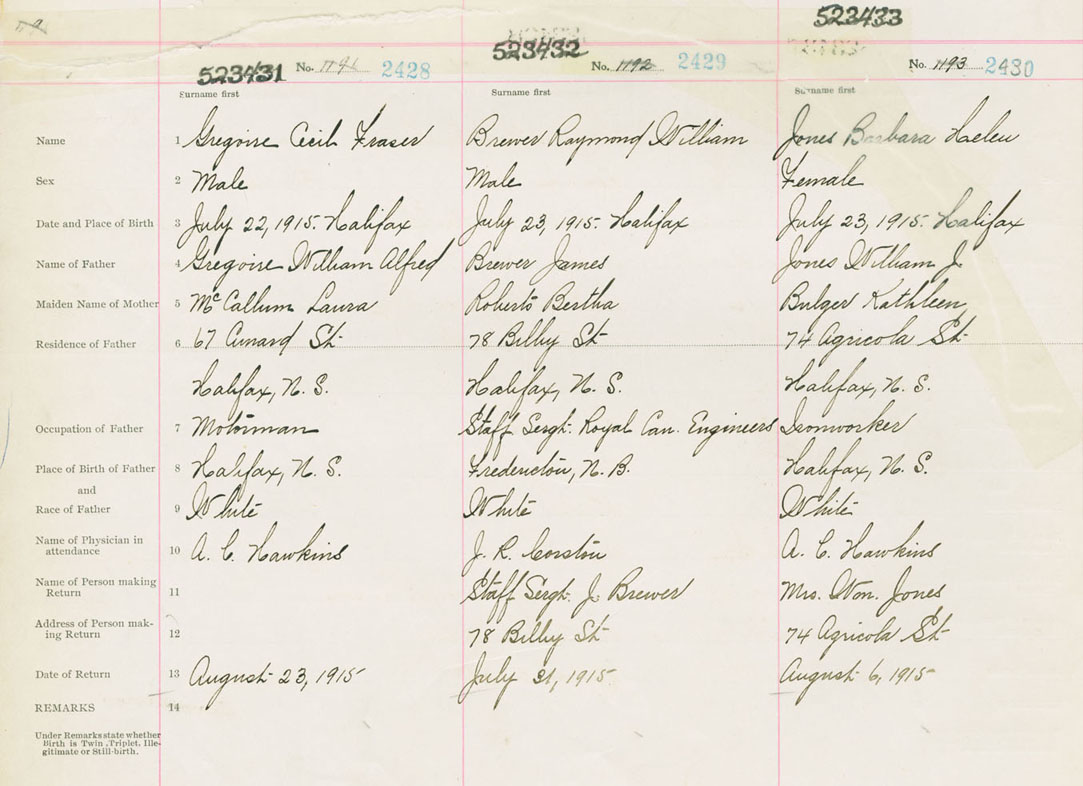 523431 No. 1191 2428
523432 No. 1192 2429
523433 No. 1193 2430
Surname first Surname first Surname first
Name 1 Gregoire Cecil Fraser Brewer Raymond William Jones Barbara Helen
Sex 2 Male Male Female
Date and Place of Birth 3 July 22, 1915. Halifax July 23, 1915. Halifax July 23, 1915. Halifax
Name of Father 4 Gregoire William Alfred Brewer James Jones William J.
Maiden Name of Mother 5 McCallum Laura Roberts Bertha Bulger Kathleen
Residence of Father 6 67 Cunard St. 78 Bilby St. 74 Agricola St.
Halifax, N. S. Halifax, N. S. Halifax, N. S.
Occupation of Father 7 Motorman Staff Sergt. Royal Can. Engineers Ironworker
Place of Birth of Father 8 Halifax, N. S. Fredericton, N. B. Halifax, N. S.
and
Race of Father 9 White White White
Name of Physician in
attendance 10 A. C. Hawkins J. R. Corston A. C. Hawkins
Name of Person making
Return 11 Staff Sergt. J. Brewer Mrs. Wm. Jones
Address of Person mak-
ing Return 12 78 Bilby St. 74 Agricola St.
Date of Return 13 August 23, 1915 July 31, 1915 August 6, 1915
REMARKS 14
Under Remarks state whether
Birth is Twin, Triplet, Ille-
gitimate or Still-birth.